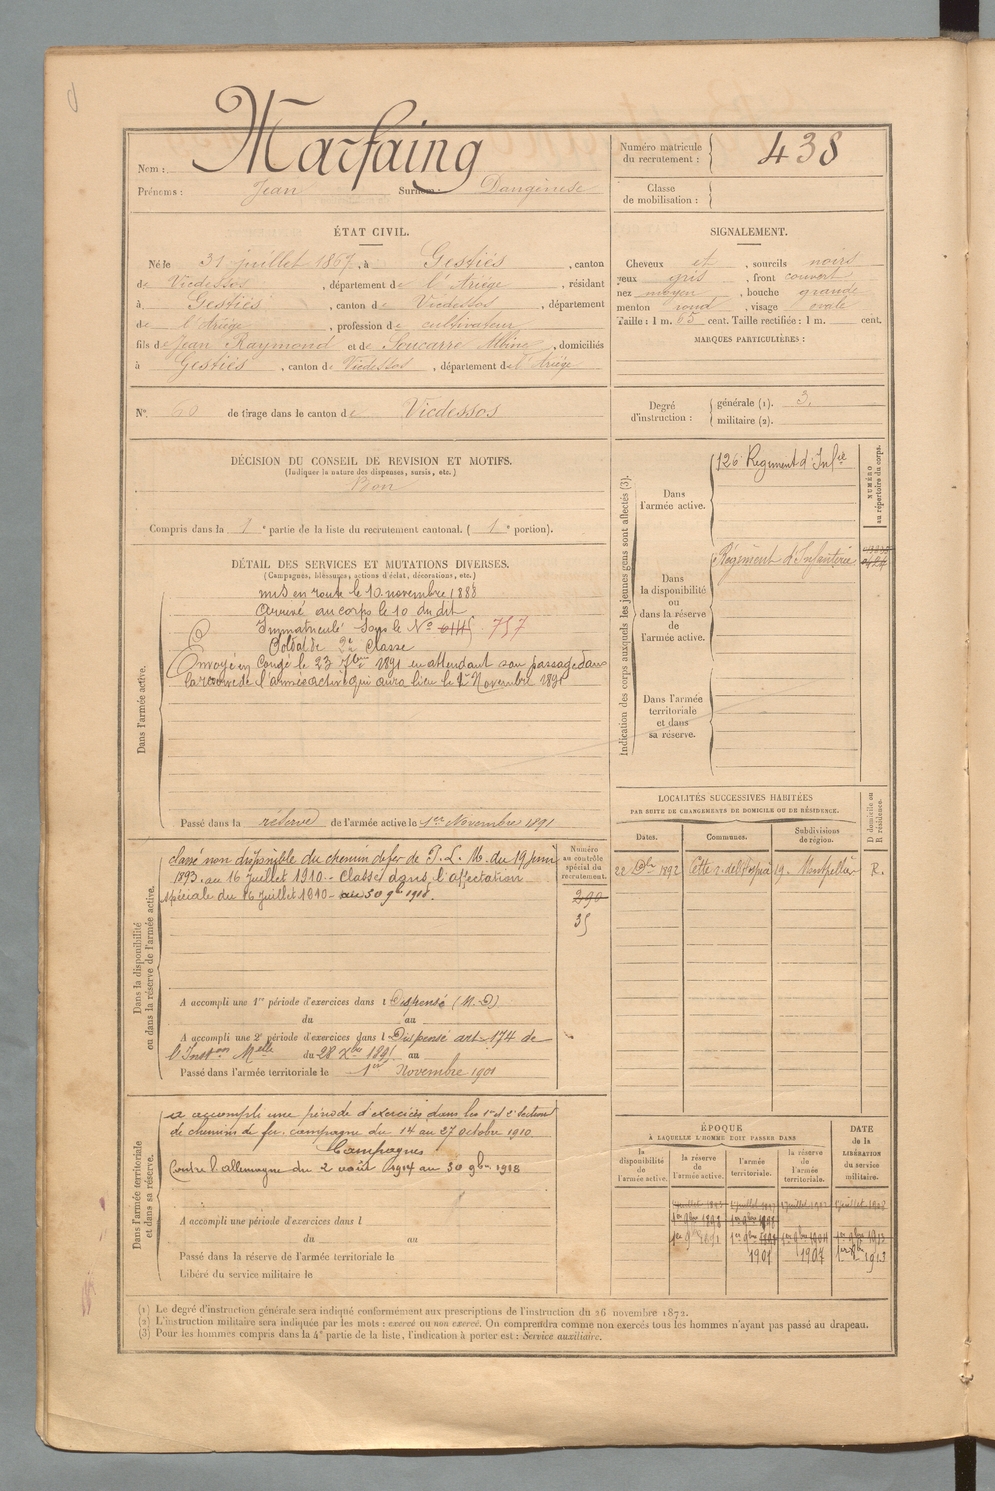 Nom : Marfaing
Prénoms : Jean Surnom : Dangénise
Numéro matricule du recrutement : 438
Classe de mobilisation :
ÉTAT CIVIL.
Né le 31 juillet 1867, à Gestiès, canton
de Vicdessos, département de l'Ariège, résidant
à Gestiès, canton de Vicdessos, département
de l'Ariège, profession de cultivateur
fils de Jean Raymond et de Soucarre Albine, domiciliés
à Gestiès, canton de Vicdessos, département de l'Ariège
SIGNALEMENT.
Cheveux et, sourcils noirs
yeux gris, front couvert
nez moyen, bouche grande
menton rond, visage ovale
Taille : 1 m. 65 cent. Taille rectifiée : 1 m. cent.
MARQUES PARTICULIÈRES :
N° 60 de tirage dans le canton de Vicdessos
Degré d'instruction : générale (1). 3.
militaire (2).
DÉCISION DU CONSEIL DE REVISION ET MOTIFS.
(Indiquer la nature des dispenses, sursis, etc.)
Bon
Compris dans la 1e partie de la liste du recrutement cantonal. (1e portion).
DÉTAIL DES SERVICES ET MUTATIONS DIVERSES.
(Campagnes, blessures, actions d'éclat, décorations, etc.)
Dans l'armée active.
mis en route le 10 novembre 1888
Arrivé au corps le 10 du dit
Immatriculé sous le N° 757
Soldat de 2e classe
Envoyé en Congé le 23 7bre 1891 en attendant son passage dans
la réserve de l'armée active qui aura lieu le 1er Novembre 1891
Passé dans la réserve de l'armée active le 1er Novembre 1891
Indication des corps auxquels les jeunes gens sont affectés (3).
NUMÉRO au répertoire du corps.
Dans l'armée active.
126e Régiment d'Infie
Dans la disponibilité ou dans la réserve de l'armée active.
Régiment d'Infanterie
Dans l'armée territoriale et dans sa réserve.
LOCALITÉS SUCCESSIVES HABITÉES
PAR SUITE DE CHANGEMENTS DE DOMICILE OU DE RÉSIDENCE.
D domicile ou R résidence.
Dates. Communes. Subdivisions de région.
22 Xbre 1892 Cette r. de l'Hospice 19. Montpellier R.
Dans la disponibilité ou dans la réserve de l'armée active.
Numéro au contrôle spécial du recrutement.
290
35
classé non disponible du chemin de fer de P. L. M. du 19 juin
1893 au 16 juillet 1910 - Classé dans l'affectation
spéciale du 16 juillet 1910 - au 30 9bre 1918.
A accompli une 1re période d'exercices dans l Dispensé (M. D)
du au
A accompli une 2e période d'exercices dans l Dispensé art 174 de
l'Inston Melle du 28 Xbre 1895 au
Passé dans l'armée territoriale le 1er Novembre 1901
Dans l'armée territoriale et dans sa réserve.
a accompli une période d'exercices dans les 1e et 2e Section
de chemins de fer. campagne du 14 au 27 octobre 1910
Campagnes
Contre l'allemagne du 2 août 1914 au 30 9bre 1918
A accompli une période d'exercices dans l
du au
Passé dans la réserve de l'armée territoriale le
Libéré du service militaire le
ÉPOQUE
À LAQUELLE L'HOMME DOIT PASSER DANS
la disponibilité de l'armée active. la réserve de l'armée active. l'armée territoriale. la réserve de l'armée territoriale.
DATE de la LIBÉRATION du service militaire.
1901 1907 1er 9bre 1913
(1) Le degré d'instruction générale sera indiqué conformément aux prescriptions de l'instruction du 26 novembre 1872.
(2) L'instruction militaire sera indiquée par les mots : exercé ou non exercé. On comprendra comme non exercés tous les hommes n'ayant pas passé au drapeau.
(3) Pour les hommes compris dans la 4e partie de la liste, l'indication à porter est : Service auxiliaire.